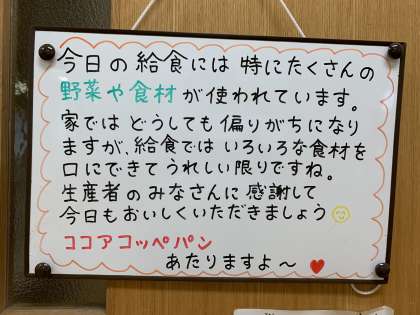 今日の給食には 特にたくさんの
野菜や食材が使われています。
家では どうしても 偏りがちになり
ますが、給食では いろいろな食材を
口にできて うれしい限りですね。
生産者の みなさんに 感謝して
今日もおいしくいただきましょう
ココアコッペパン
あたりますよ〜